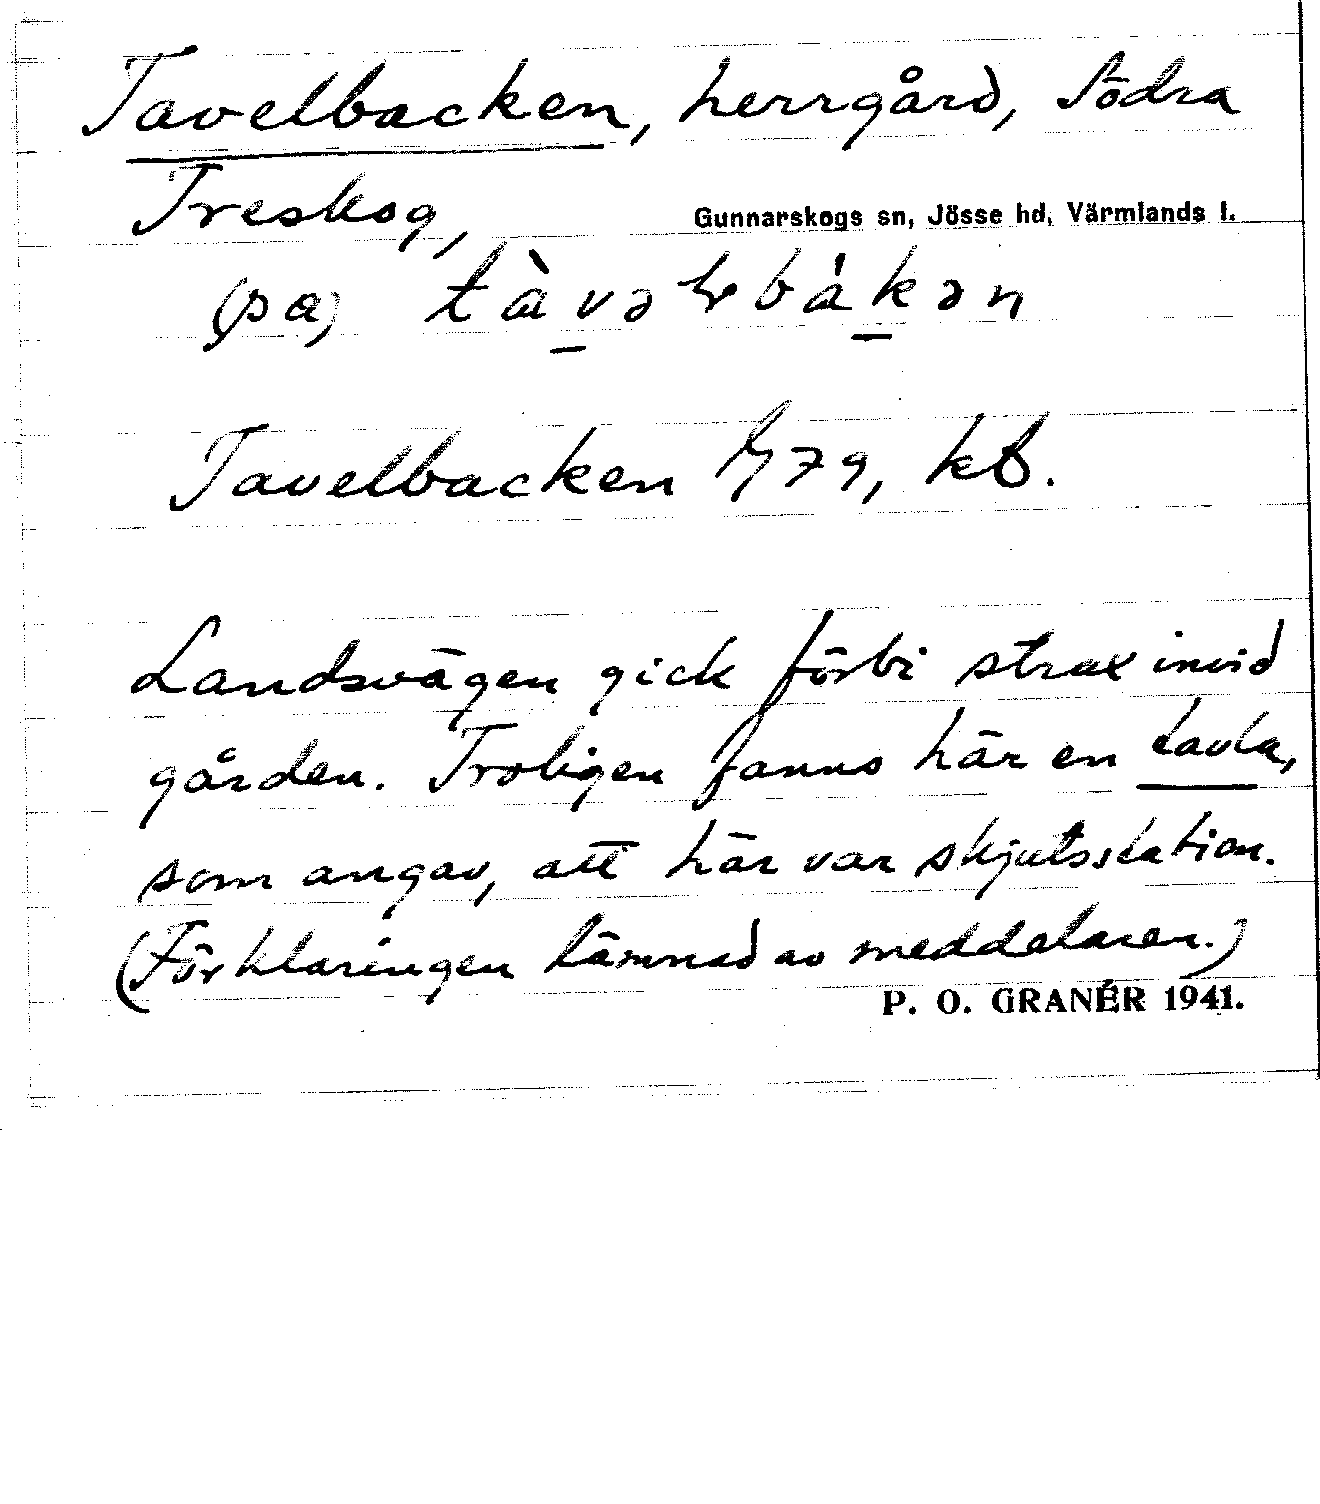 Tavelbacken, herrgård, Södra
Treskog,
Gunnarskogs sn, Jösse hd, Värmlands l.
(pa)
Tavelbacken 1779, kb.
Landsvägen gick förbi strax invid
gården. Troligen fanns här en tavla,
som angav, att här var skjutsstation.
(Förklaringen lämnad av meddelaren.)
P. O. GRANÉR 1941.